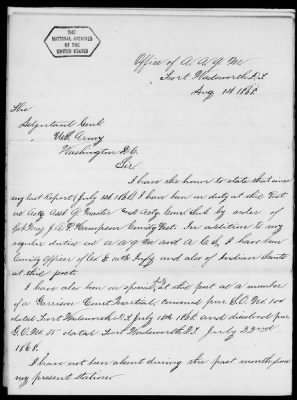 THE
NATIONAL ARCHIVES
OF THE
UNITED STATES
Office of A A Q M
Fort Wadsworth D.T
Aug 1st 1868
The
Adjutant Genl
U.S. Army
Washington D.C.
Sir
I have the honor to state that since
my last Report (July 1st 1868) I have been on duty at this Post
as Actg Asst Qr Master and Actg Coml Sub by order of
Maj J. A. P. Hampson Comdg Post. In addition to my
regular duties as A A Q M and A C S, I have been
Comdg Officer of Co E 10th Infty and also of Indian Scouts
at this post.
I have also been on special duty at this post as a member
of a Garrison Court Martial, convened per S.O. No 100
dated Fort Wadsworth D.T July 18th 1868 and dissolved per
G.O. No 55 dated Fort Wadsworth D.T July 22nd
1868.
I have not been absent during the past month from
my present station